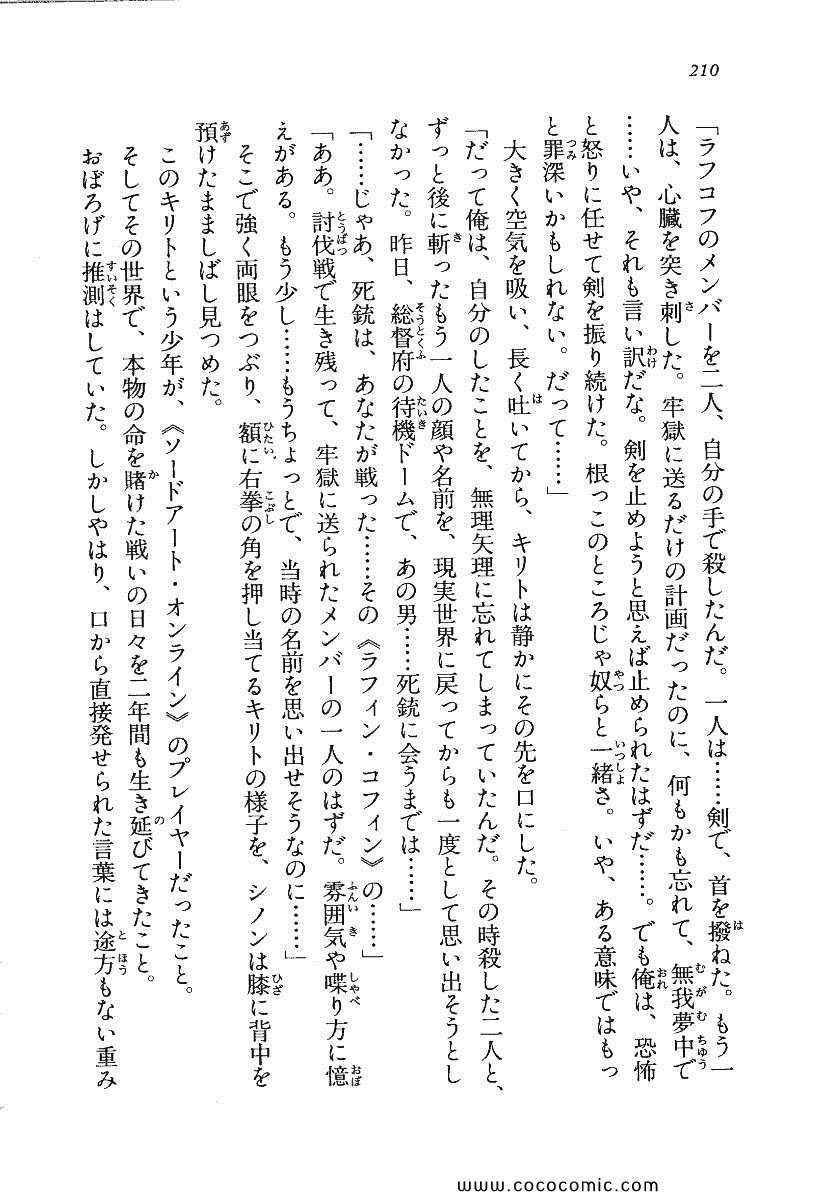 210
「ラフコフのメンバーを二人、自分の手で殺したんだ。一人は……剣で、首を撥ねた。もう一
人は、心臓を突き刺した。牢獄に送るだけの計画だったのに、何もかも忘れて、無我夢中で
……いや、それも言い訳だな。剣を止めようと思えば止められたはずだ……。でも俺は、恐怖
と怒りに任せて剣を振り続けた。根っこのところじゃ奴らと一緒さ。いや、ある意味ではもっ
と罪深いかもしれない。だって……」
大きく空気を吸い、長く吐いてから、キリトは静かにその先を口にした。
「だって俺は、自分のしたことを、無理矢理に忘れてしまっていたんだ。その時殺した二人と、
ずっと後に斬ったもう一人の顔や名前を、現実世界に戻ってからも一度として思い出そうとし
なかった。昨日、総督府の待機ドームで、あの男……死銃に会うまでは……」
「……じゃあ、死銃は、あなたが戦った……その《ラフィン・コフィン》の……」
「ああ。討伐戦で生き残って、牢獄に送られたメンバーの一人のはずだ。雰囲気や喋り方に憶
えがある。もう少し……もうちょっとで、当時の名前を思い出せそうなのに……」
そこで強く両眼をつぶり、額に右拳の角を押し当てるキリトの様子を、シノンは膝に背中を
預けたまましばし見つめた。
このキリトという少年が、《ソードアート・オンライン》のプレイヤーだったこと。
そしてその世界で、本物の命を賭けた戦いの日々を二年間も生き延びてきたこと。
おぼろげに推測はしていた。しかしやはり、口から直接発せられた言葉には途方もない重み
www.cococomic.com